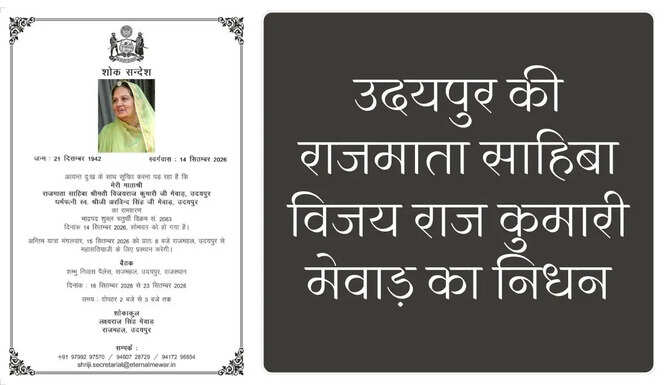 शोक सन्देश
जन्म : 21 दिसम्बर 1942 स्वर्गवास : 14 सितम्बर 2026
अत्यन्त दुःख के साथ सूचित करना पड़ रहा है कि
मेरी माताश्री
राजमाता साहिबा श्रीमती विजयराज कुमारी जी मेवाड़, उदयपुर
धर्मपत्नी स्व. श्रीजी अरविन्द सिंह जी मेवाड़, उदयपुर
का रामशरण
भाद्रपद शुक्ल चतुर्थी विक्रम सं. 2083
दिनांक 14 सितम्बर 2026, सोमवार को हो गया है।
अन्तिम यात्रा मंगलवार, 15 सितम्बर 2026 को प्रातः 8 बजे राजमहल, उदयपुर से
महासतियाजी के लिए प्रस्थान करेगी।
बैठक
शम्भु निवास पैलेस, राजमहल, उदयपुर, राजस्थान
दिनांक : 16 सितम्बर 2026 से 23 सितम्बर 2026
समय : दोपहर 2 बजे से 3 बजे तक
शोकाकुल
लक्ष्यराज सिंह मेवाड़
राजमहल, उदयपुर
सम्पर्क :
+91 97992 97570 / 94607 28729 / 94172 96834
shriji.secretariat@eternalmewar.in
उदयपुर की
राजमाता साहिबा
विजय राज कुमारी
मेवाड़ का निधन